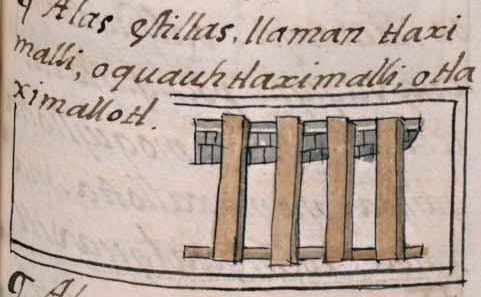 ¶ A las astillas, llaman tlaxi
malli, o quauhtlaximalli, o tla
ximallotl.
¶ Al